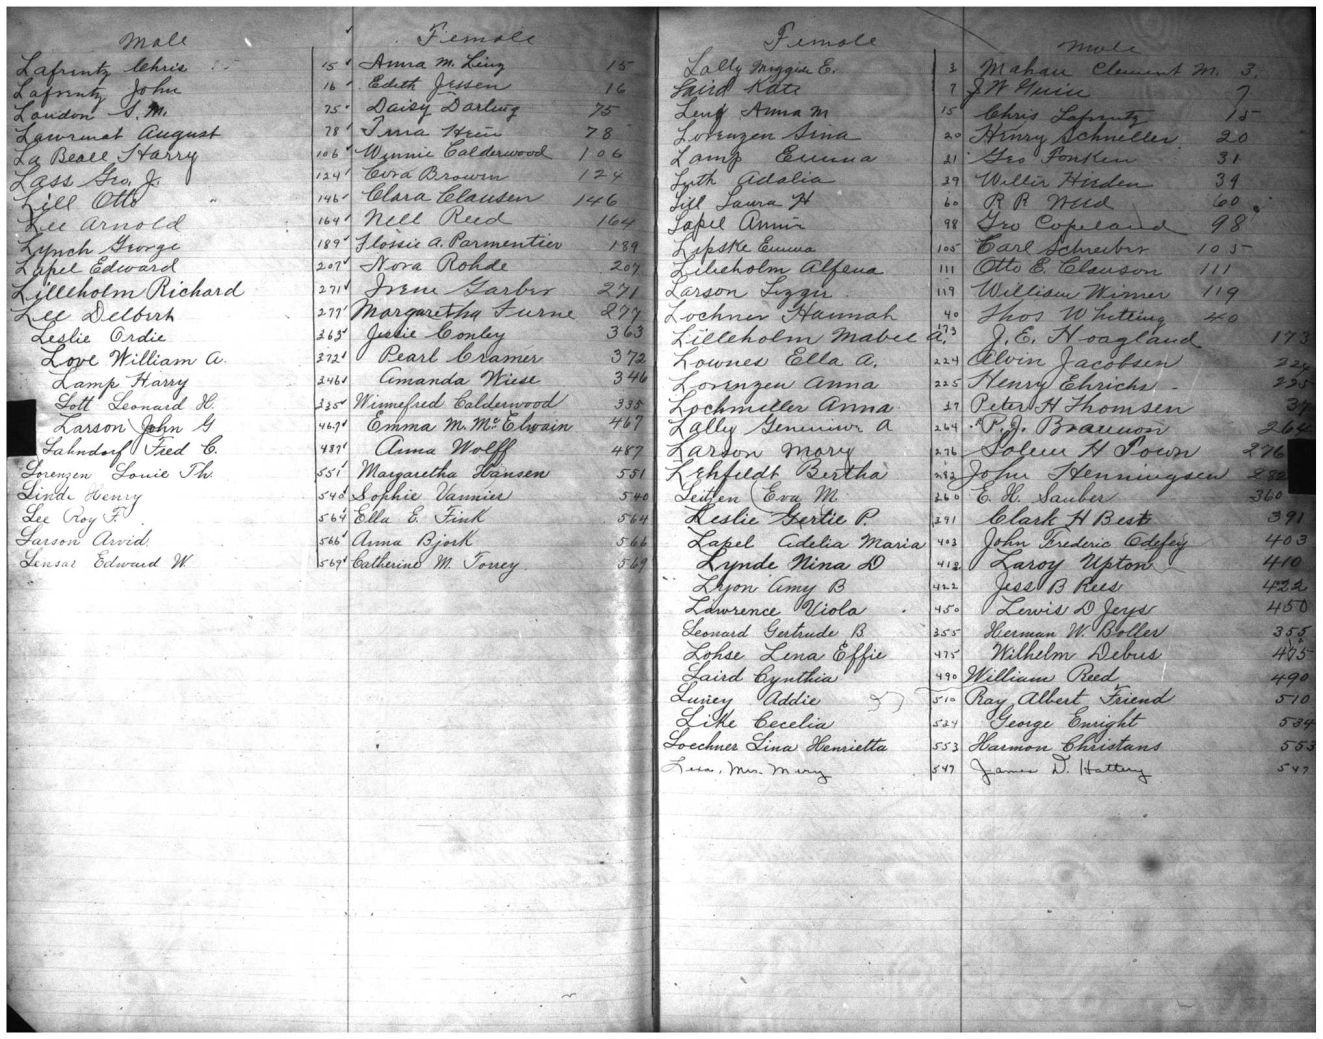 Male Female
Lafrentz Chris 15 Anna M. Leng 15
Lafrentz John 16 Edith Jessen 16
Loudon S. M. 75 Daisy Darling 75
August 78 Hein 78
La Beall Harry 106 Winnie Calderwood 106
Lass Geo. J. 124 Cora Brown 124
Lill Otto 146 Clara Clausen 146
Lee Arnold 164 Nell Reed 164
Lynch George 189 Flossie A. Parmentier 189
Lapel Edward 207 Nora Rohde 207
Lilleholm Richard 271 Irene Garber 271
Lee Delbert 277 Margaretha Furne 277
Leslie Ordie 363 Jessie Conley 363
Love William A. 372 Pearl Cramer 372
Lamp Harry 346 Amanda Wiese 346
Lott Leonard H. 335 Winnefred Calderwood 335
Larson John G 467 Emma M. McElwain 467
Lahndorf Fred C. 487 Anna Wolff 487
Lorenzen Louie Th. 551 Margaretha Hansen 551
Linde Henry 540 Sophie Vannier 540
Lee Roy F. 564 Ella E. Fink 564
Larson Arvid 566 Anna Bjork 566
Lensar Edward W. 569 Catherine M. Torrey 569
Female Male
Lally Maggie E. 3 Mahan Clement M. 3.
Laird Kate 7 J W 7
Leng Anna M 15 Chris Lafrentz 15
Lorenzen Sina 20 Henry Schneller 20
Lamp Emma 31 Geo Ponken 31
Luth Adalia 39 Willie 39
Lill Laura H 60 R R Weed 60
Lapel Annie 98 Geo Copeland 98
Lepske Emma 105 Carl Schreiber 105
Lilieholm Alfena 111 Otto E. Clauson 111
Larson Lizzie 119 William Wimer 119
Lochner Hannah 40 Thos Whiting 40
Lilleholm Mabel A. 173 J. E. Hoagland 173
Lownes Ella A. 224 Alvin Jacobsen 224
Lorenzen Anna 225 Henry Ehrichs 225
Lochmiller Anna 37 Peter H Thomsen 37
Lally Genevieve A 264 P. J. Brannon 264
Larson Mary 276 Solem H Town 276
Lehfeldt Bertha 282 John Henningsen 282
Leitzen Eva M. 360 E. H. Sauber 360
Leslie Gertie P. 391 Clark H Best 391
Lapel Adelia Maria 403 John Frederic Odefey 403
Lynde Nina D 410 Laroy Upton 410
Lyon Amy B 422 Jess B Rees 422
Lawrence Viola 450 Lewis D Jeys 450
Leonard Gertrude B 355 Herman W. Boller 355
Lohse Lena Effie 475 Wilhelm Debus 475
Laird Cynthia 490 William Reed 490
Luney Addie 510 Ray Albert Friend 510
Like Cecelia 534 George Enright 534
Loechner Lina Henrietta 553 Harmon Christans 553
Mrs. Mary 547 James D. Hattery 547